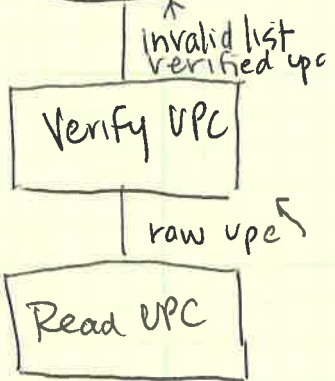 invalid list
verified upc
Verify UPC
raw upc
Read UPC